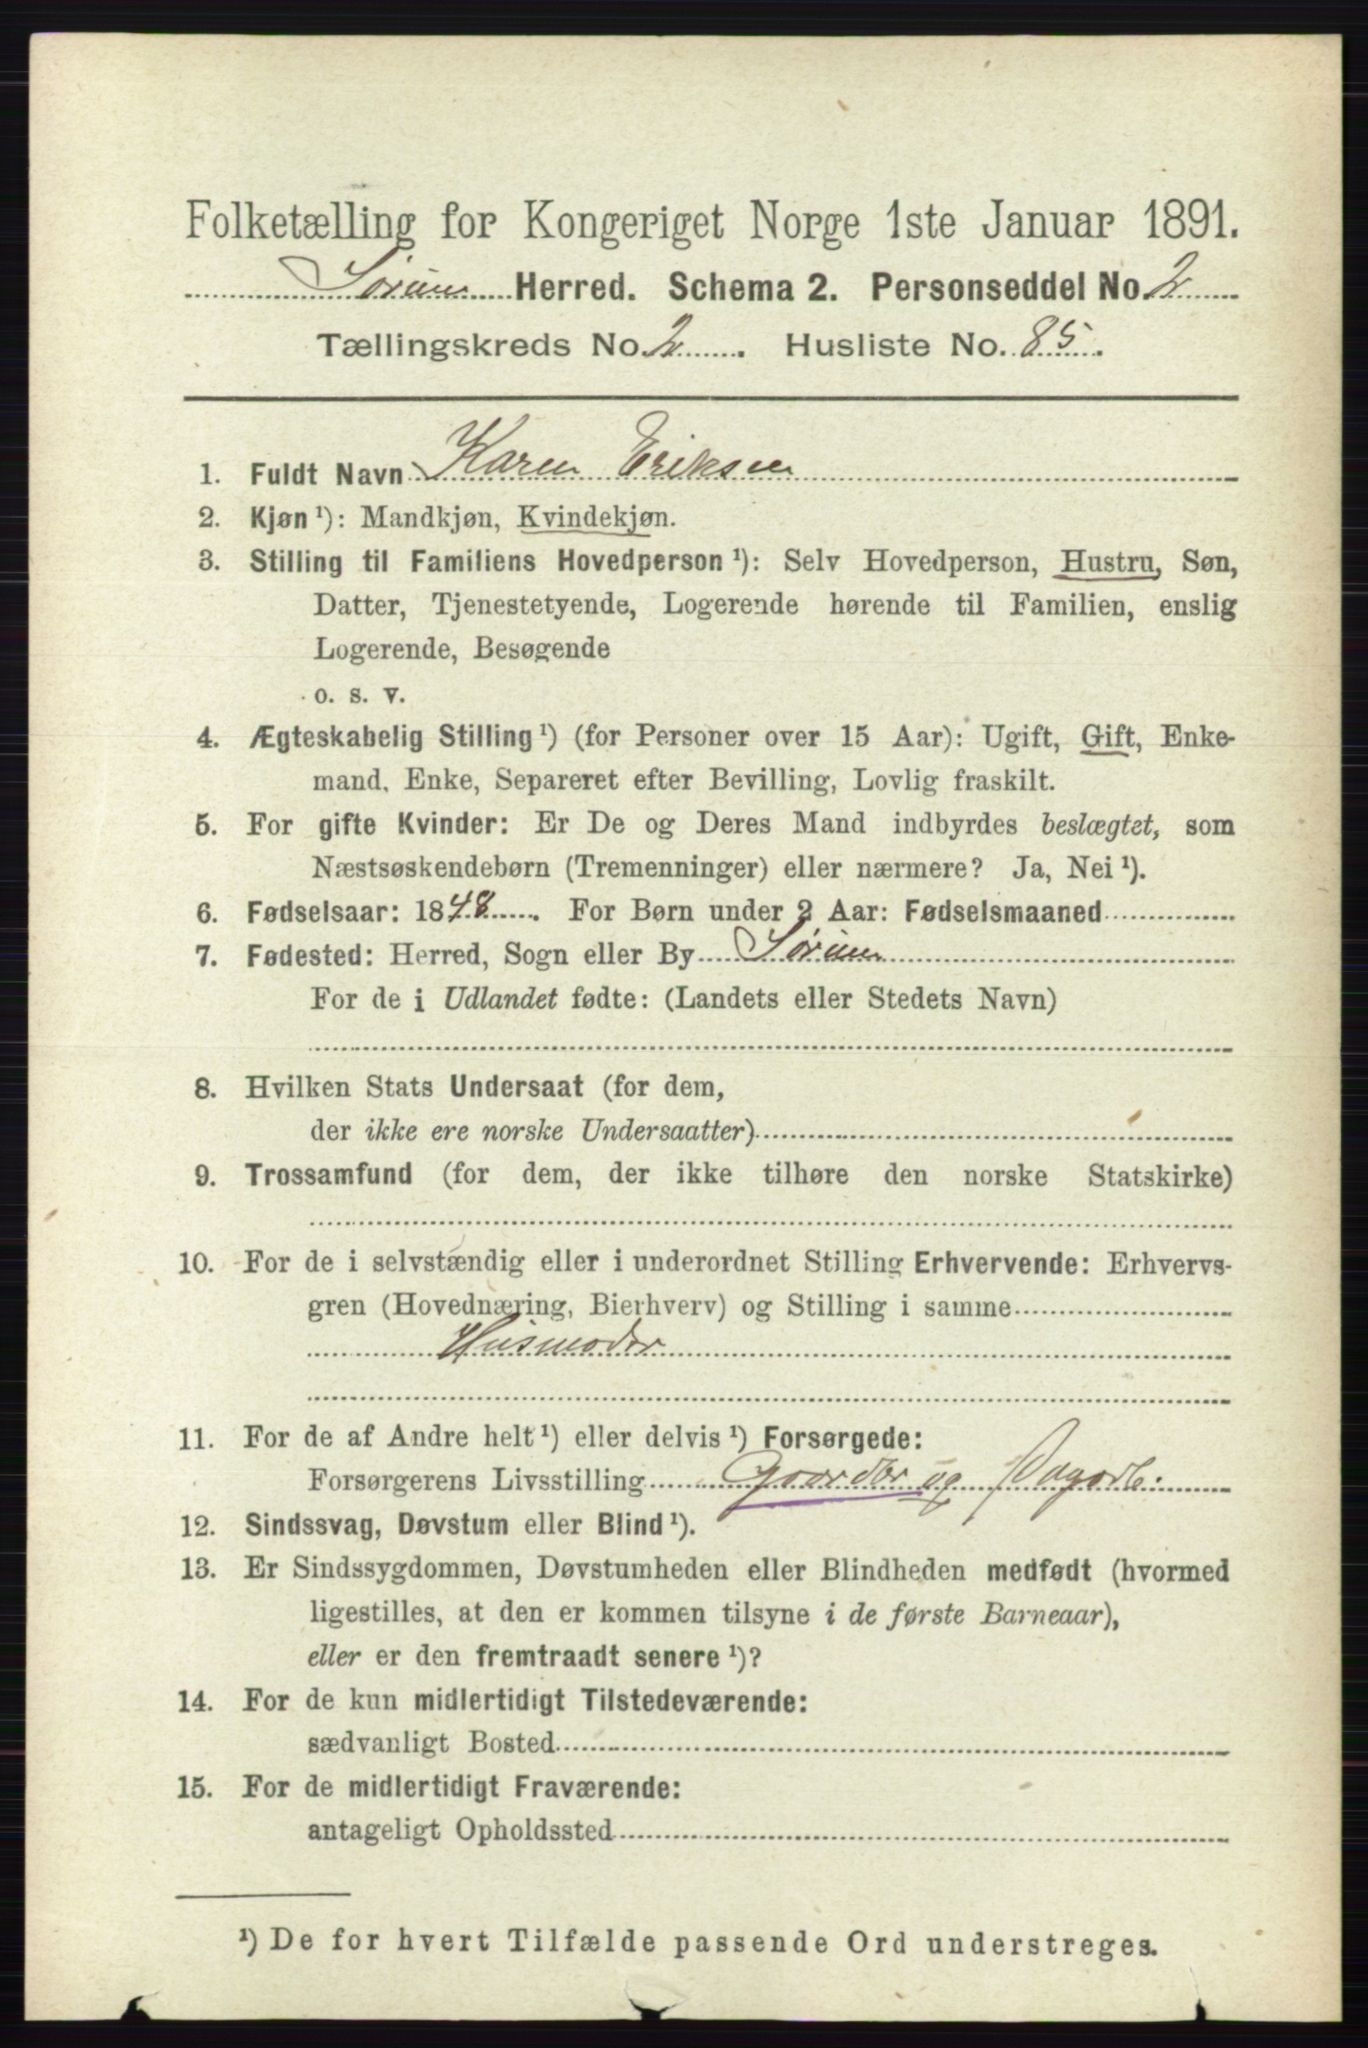 Folketælling for Kongeriget Norge 1ste Januar 1891.
Sørum Herred. Schema 2. Personseddel No. 2
Tællingskreds No. 2. Husliste No. 85.
1. Fuldt Navn Karen Eriksen
2. Kjøn ¹): Mandkjøn, Kvindekjøn.
3. Stilling til Familiens Hovedperson ¹): Selv Hovedperson, Hustru, Søn,
Datter, Tjenestetyende, Logerende hørende til Familien, enslig
Logerende, Besøgende
o. s. v.
4. Ægteskabelig Stilling ¹) (for Personer over 15 Aar): Ugift, Gift, Enke-
mand, Enke, Separeret efter Bevilling, Lovlig fraskilt.
5. For gifte Kvinder: Er De og Deres Mand indbyrdes beslægtet, som
Næstsøskendebørn (Tremenninger) eller nærmere? Ja, Nei ¹).
6. Fødselsaar: 1848. For Børn under 2 Aar: Fødselsmaaned
7. Fødested: Herred, Sogn eller By Sørum
For de i Udlandet fødte: (Landets eller Stedets Navn)
8. Hvilken Stats Undersaat (for dem,
der ikke ere norske Undersaatter)
9. Trossamfund (for dem, der ikke tilhøre den norske Statskirke)
10. For de i selvstændig eller i underordnet Stilling Erhvervende: Erhvervs-
gren (Hovednæring, Bierhverv) og Stilling i samme
Husmoder
11. For de af Andre helt ¹) eller delvis ¹) Forsørgede:
Forsørgerens Livsstilling Gaardbr og Dagarb.
12. Sindssvag, Døvstum eller Blind ¹).
13. Er Sindssygdommen, Døvstumheden eller Blindheden medfødt (hvormed
ligestilles, at den er kommen tilsyne i de første Barneaar),
eller er den fremtraadt senere ¹)?
14. For de kun midlertidigt Tilstedeværende:
sædvanligt Bosted
15. For de midlertidigt Fraværende:
antageligt Opholdssted
¹) De for hvert Tilfælde passende Ord understreges.